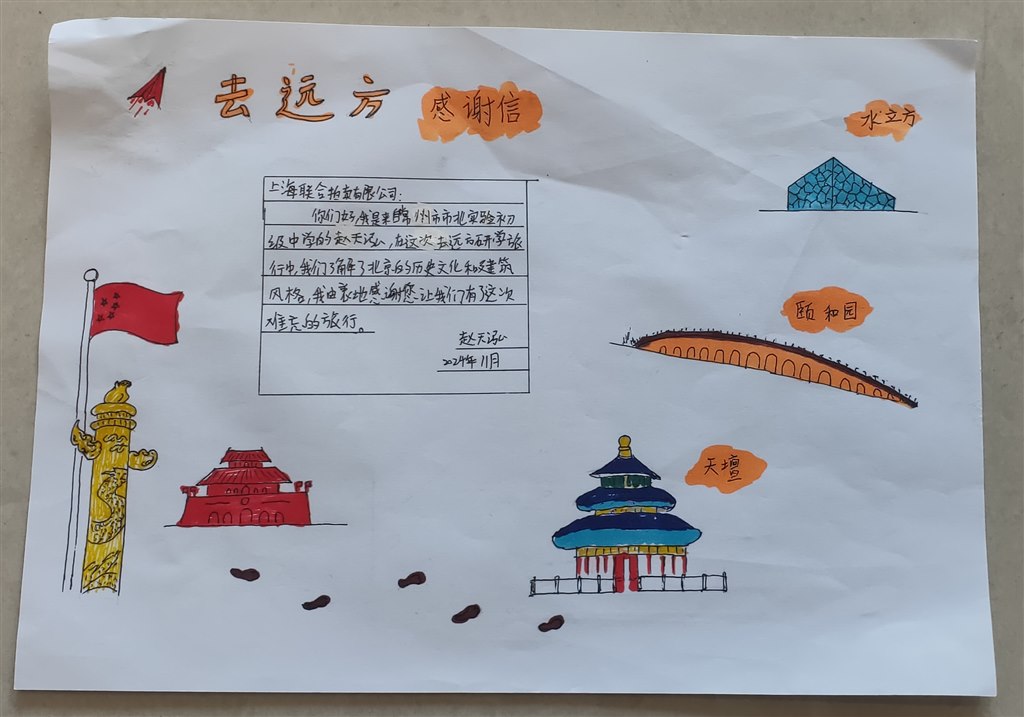 去远方
感谢信
水立方
上海联合拍卖有限公司:
你们好,我是来自滕州市市北实验初
级中学的赵天泓,在这次去远方研学旅
行中,我们了解了北京的历史文化和建筑
风格,我由衷地感谢您让我们有了这次
难忘的旅行。
赵天泓
2024年11月
颐和园
天壇